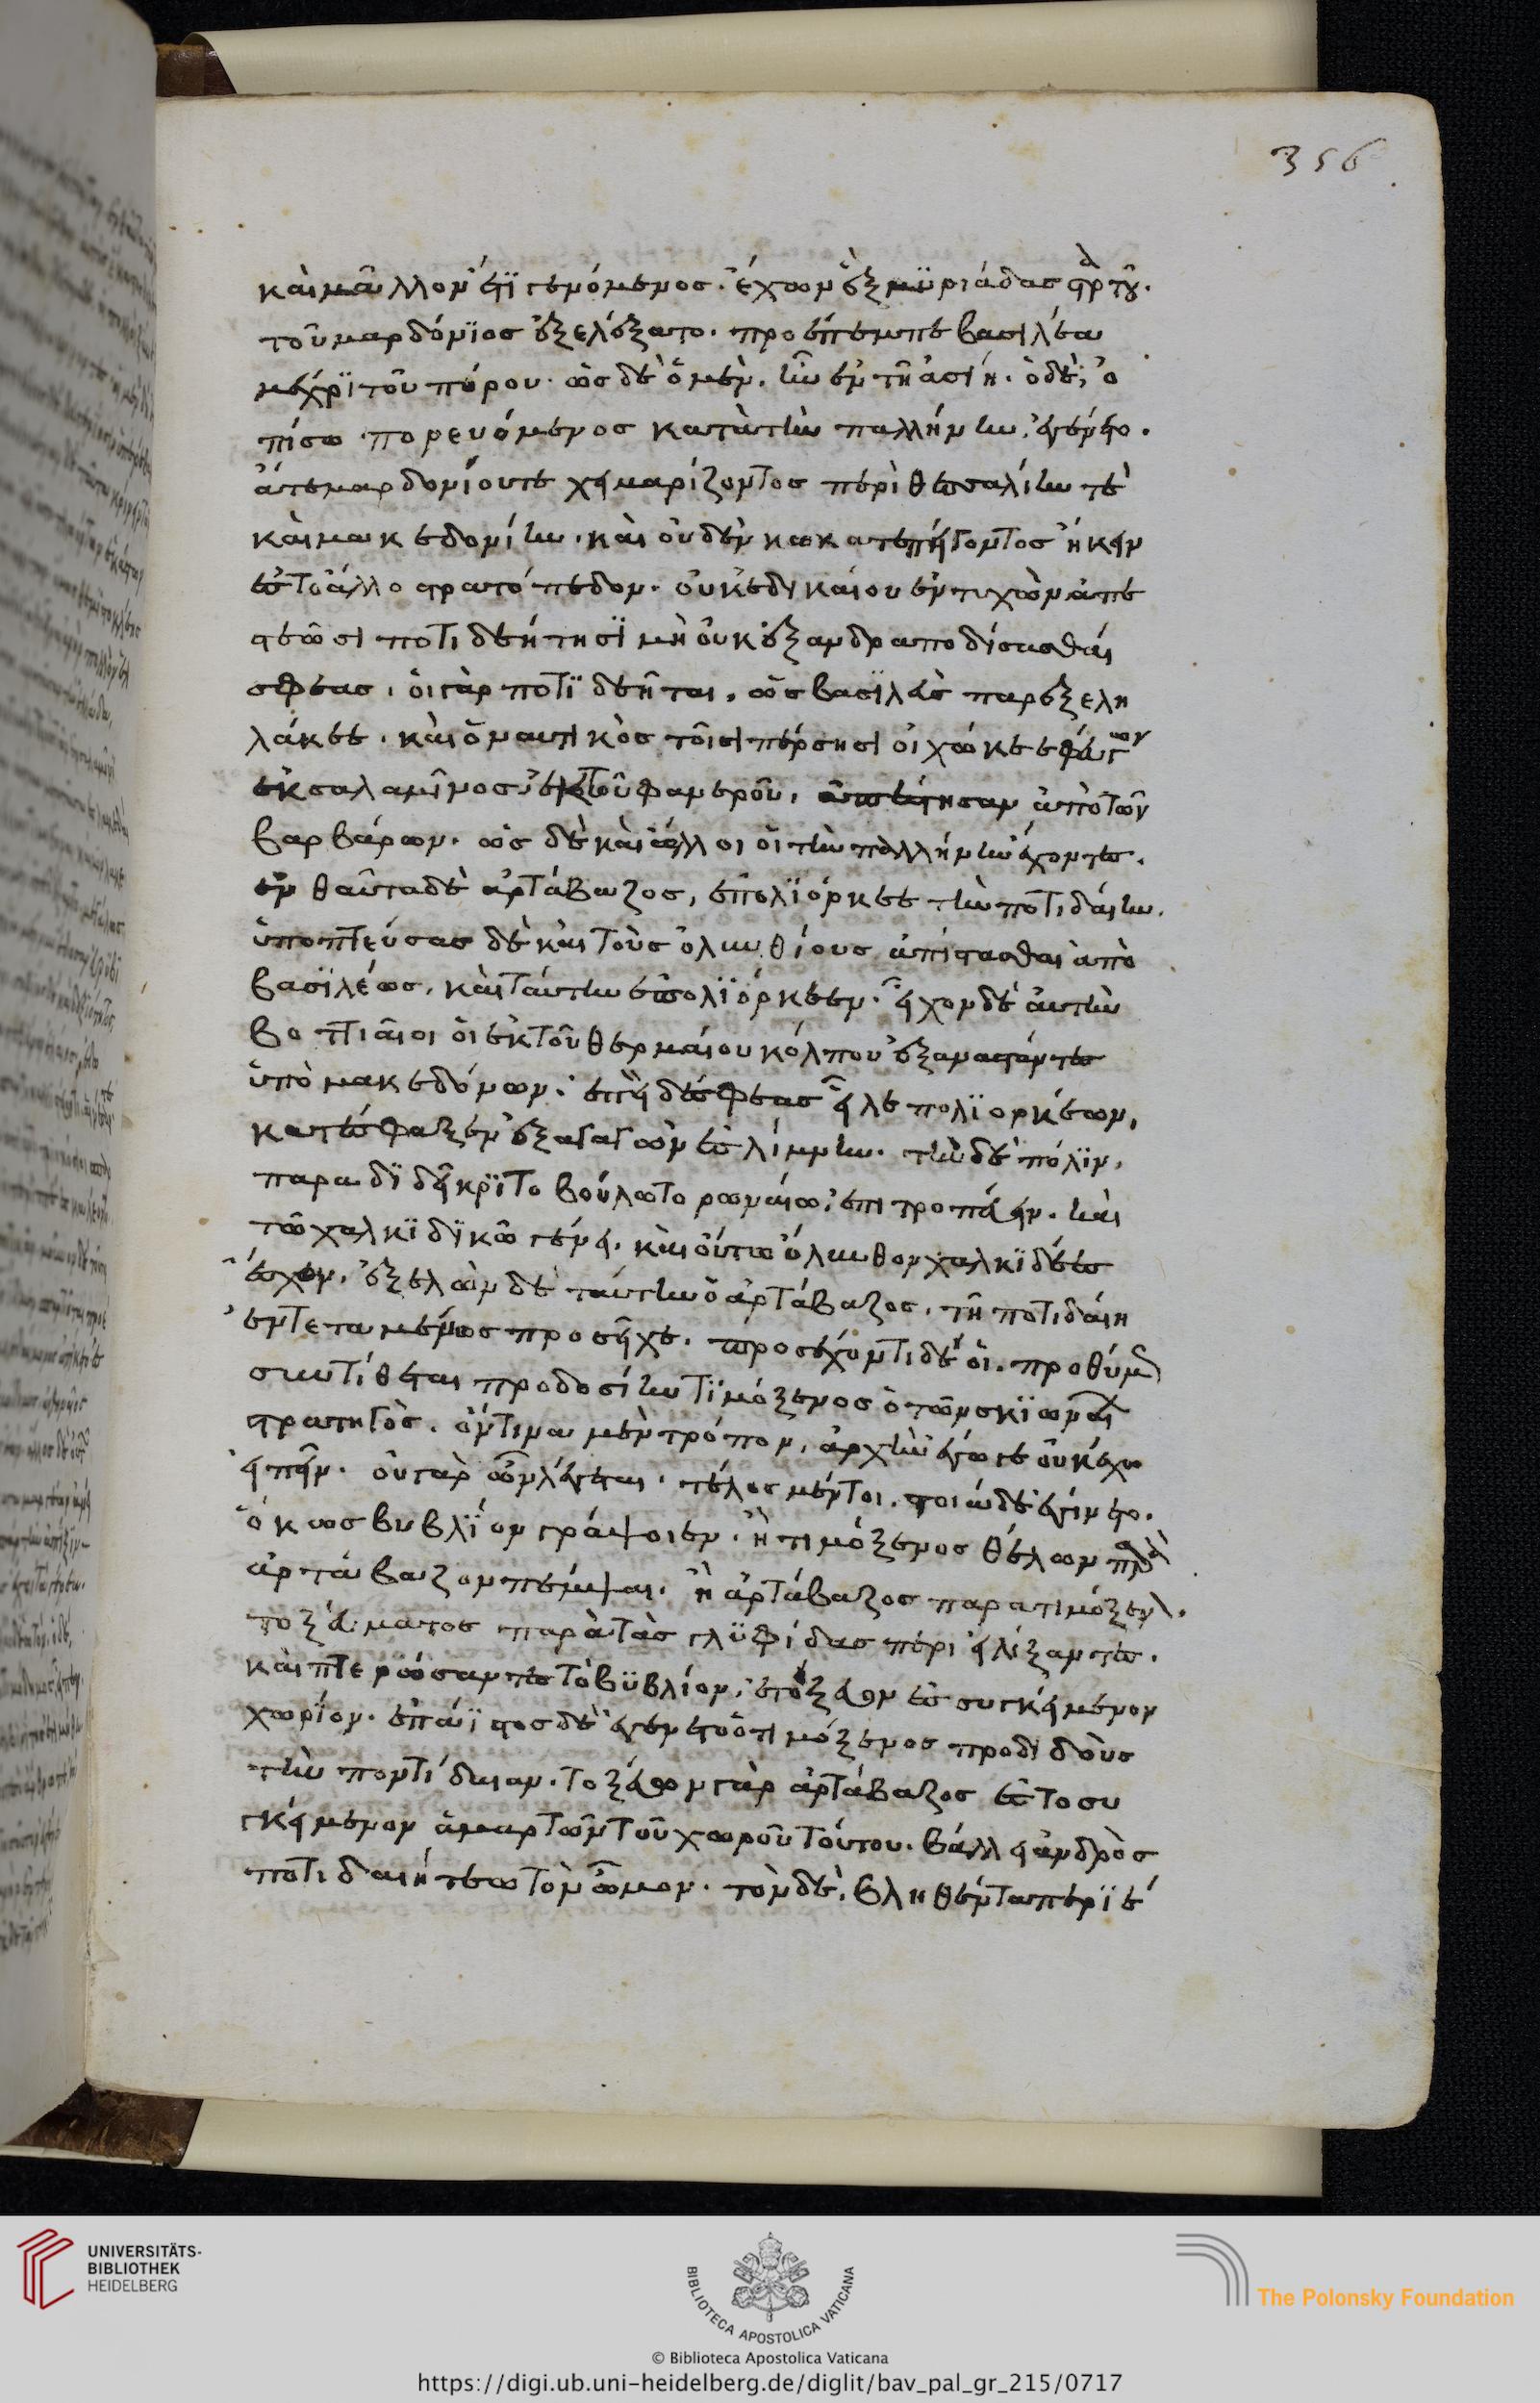 356
καὶ μᾶλλον ἔτι γενόμενος. ἔχων ἓξ μυριάδας στρατοῦ.
τοῦ μαρδόνιος ἐξελέξατο. προέπεμπε βασιλέα
μέχρι τοῦ πόρου. ὡς δὲ ὁ μὲν, ἦν ἐν τῆ ἀσίη. ὁ δὲ, ὀ
πίσω πορευόμενος κατὰ τὴν παλλήνην, ἐγένετο.
ἅτε μαρδονίου τε χειμαρίζοντος περὶ θεσσαλίην τὲ
καὶ μακεδονίην. καὶ οὐδέν κω κατεπείγοντος ἥκειν
ἐς τὸ ἄλλο στρατόπεδον. οὐκ ἐδικαίου ἐντυχὼν ἀπε
στεῶσι ποτιδεήτησι μὴ οὐκ ἐξανδραποδίσασθαί
σφεας. οἱ γὰρ ποτιδεῆται, ὡς βασιλεὺς παρεξελη
λάκεε. καὶ ὁ ναυτικὸς τοῖσι πέρσησι οἰχώκεε φεύγων
ἐκ σαλαμῖνος, ἐκ τοῦ φανεροῦ, ἀπέστησαν ἀπὸ τῶν
βαρβάρων. ὡς δὲ καὶ ἄλλοι οἱ τὴν παλλήνην ἔχοντες.
ἐνθαῦτα δὲ ἀρτάβαζος, ἐπολιόρκεε τὴν ποτιδαίην.
ὑποπτεύσας δὲ καὶ τοὺς ὀλυνθίους ἀπίστασθαι ἀπὸ
βασιλέως, καὶ ταύτην ἐπολιόρκεεν. εἶχον δὲ αὐτὴν
βοττιαῖοι οἱ ἐκ τοῦ θερμαίου κόλπου ἐξαναστάντες
ὑπὸ μακεδόνων. ἐπεὶ δέ σφεας εἷλε πολιορκέων,
κατέσφαξεν ἐξαγαγὼν ἐς λίμνην. τὴν δὲ πόλιν,
παραδιδεῖ κριτοβούλω τορωναίω, ἐπιτροπεύειν. καὶ
τῶ χαλκιδικῶ γένει. καὶ οὕτω ὄλυνθον χαλκιδέες
ἔσχον. ἐξελὼν δὲ ταύτην ὁ ἀρτάβαζος, τῆ ποτιδαίη
ἐντεταμένως προσεῖχε. προσέχοντι δέ οἱ προθύμως
συντίθεται προδοσίην τιμόξενος ὁ τῶν σκιωναίων
στρατηγὸς. ὅντινα μὲν τρόπον, ἀρχὴν ἔγωγε οὐκ ἔχω
εἰπεῖν. οὐ γὰρ ὦν λέγεται. τέλος μέντοι, τοιάδε ἐγίνετο.
ὅκως βυβλίον γράψοιεν. ἢ τιμόξενος θέλων παρὰ
ἀρτάβαζον πέμψαι. ἢ ἀρτάβαζος παρὰ τιμόξενον.
τοξεύματος παρὰ τὰς γλυφίδας περιειλίξαντες.
καὶ πτερώσαντες τὸ βυβλίον, ἐτόξευον ἐς συγκείμενον
χωρίον. ἐπάϊστος δὲ ἐγένετο ὁ τιμόξενος προδιδοὺς
τὴν ποντίδαιαν. τοξεύων γὰρ ἀρτάβαζος ἐς τὸ συ
γκείμενον ἁμαρτῶν τοῦ χωροῦ τούτου. βάλλει ἀνδρὸς
ποτιδαιήτεω τὸν ὦμον. τὸν δὲ, βληθέντα περιέ
UNIVERSITÄTS-
BIBLIOTHEK
HEIDELBERG
BIBLIOTECA APOSTOLICA VATICANA
The Polonsky Foundation
© Biblioteca Apostolica Vaticana
https://digi.ub.uni-heidelberg.de/diglit/bav_pal_gr_215/0717